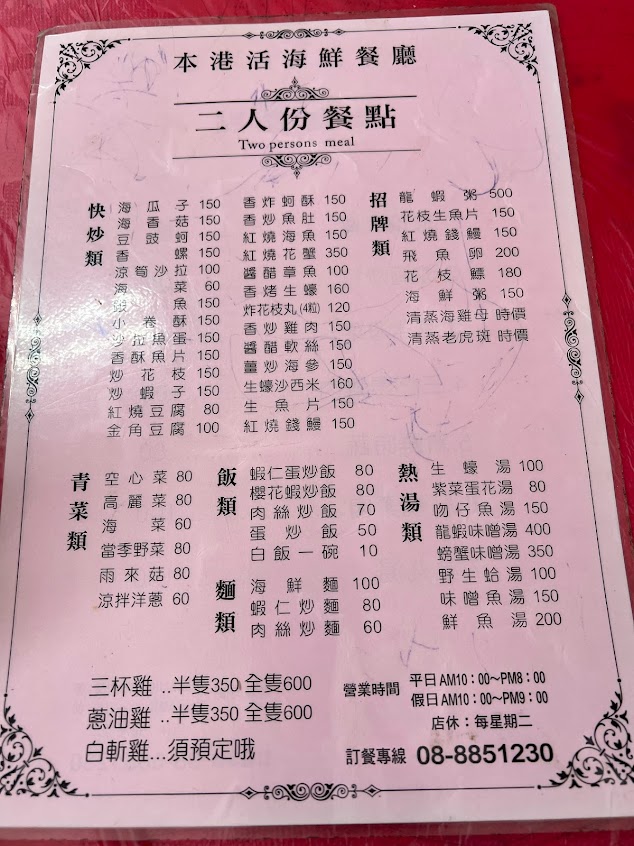 本港活海鮮餐廳
二人份餐點
Two persons meal
快炒類
海瓜子 150
海香菇 150
豆豉蚵 150
香螺 150
涼筍沙拉 100
海菜 60
魚 150
小卷酥 150
沙拉魚蛋 150
香酥魚片 150
炒花枝 150
炒蝦子 150
紅燒豆腐 80
金角豆腐 100
香炸蚵酥 150
香炒魚肚 150
紅燒海魚 150
紅燒花蟹 350
醬醋章魚 100
香烤生蠔 160
炸花枝丸(4粒) 120
香炒雞肉 150
醬醋軟絲 150
薑炒海參 150
生蠔沙西米 160
生魚片 150
紅燒錢鰻 150
招牌類
龍蝦粥 500
花枝生魚片 150
紅燒錢鰻 150
飛魚卵 200
花枝鰾 180
海鮮粥 150
清蒸海雞母 時價
清蒸老虎斑 時價
青菜類
空心菜 80
高麗菜 80
海菜 60
當季野菜 80
雨來菇 80
涼拌洋蔥 60
飯類
蝦仁蛋炒飯 80
櫻花蝦炒飯 80
肉絲炒飯 70
蛋炒飯 50
白飯一碗 10
麵類
海鮮麵 100
蝦仁炒麵 80
肉絲炒麵 60
熱湯類
生蠔湯 100
紫菜蛋花湯 80
吻仔魚湯 150
龍蝦味噌湯 400
螃蟹味噌湯 350
野生蛤湯 100
味噌魚湯 150
鮮魚湯 200
三杯雞 ..半隻350 全隻600
蔥油雞 ..半隻350 全隻600
白斬雞...須預定哦
營業時間
平日AM10：00～PM8：00
假日AM10：00～PM9：00
店休：每星期二
訂餐專線 08-8851230